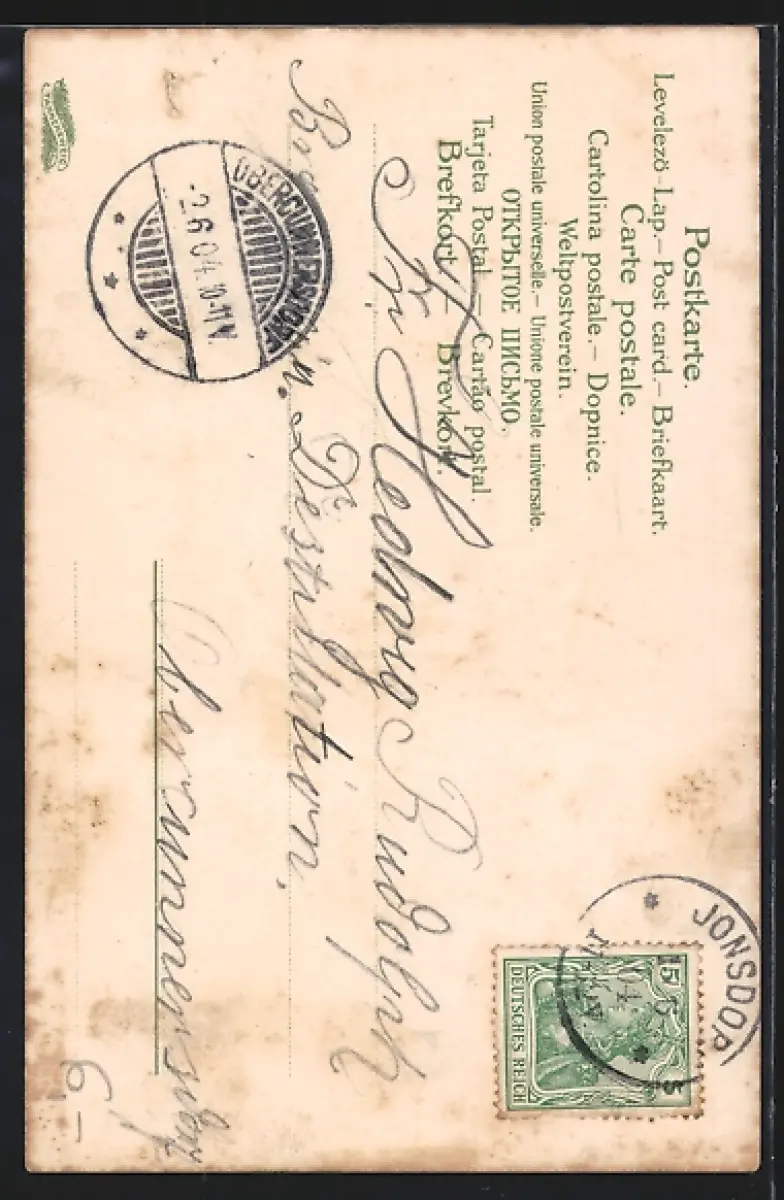 Postkarte.
Levelező-Lap.– Post card.– Briefkaart.
Carte postale.
Cartolina postale.– Dopnice.
Weltpostverein.
Union postale universelle.– Unione postale universale.
ОТКРЫТОЕ ПИСЬМО.
Tarjeta Postal.– Cartão postal.
Brefkort – Brevkort.
JONSDOR
DEUTSCHES REICH
5
Hedwig Rudolph
u. Destillation.
Obercunnersdorf
2.6.04. 10-11V.
6,–